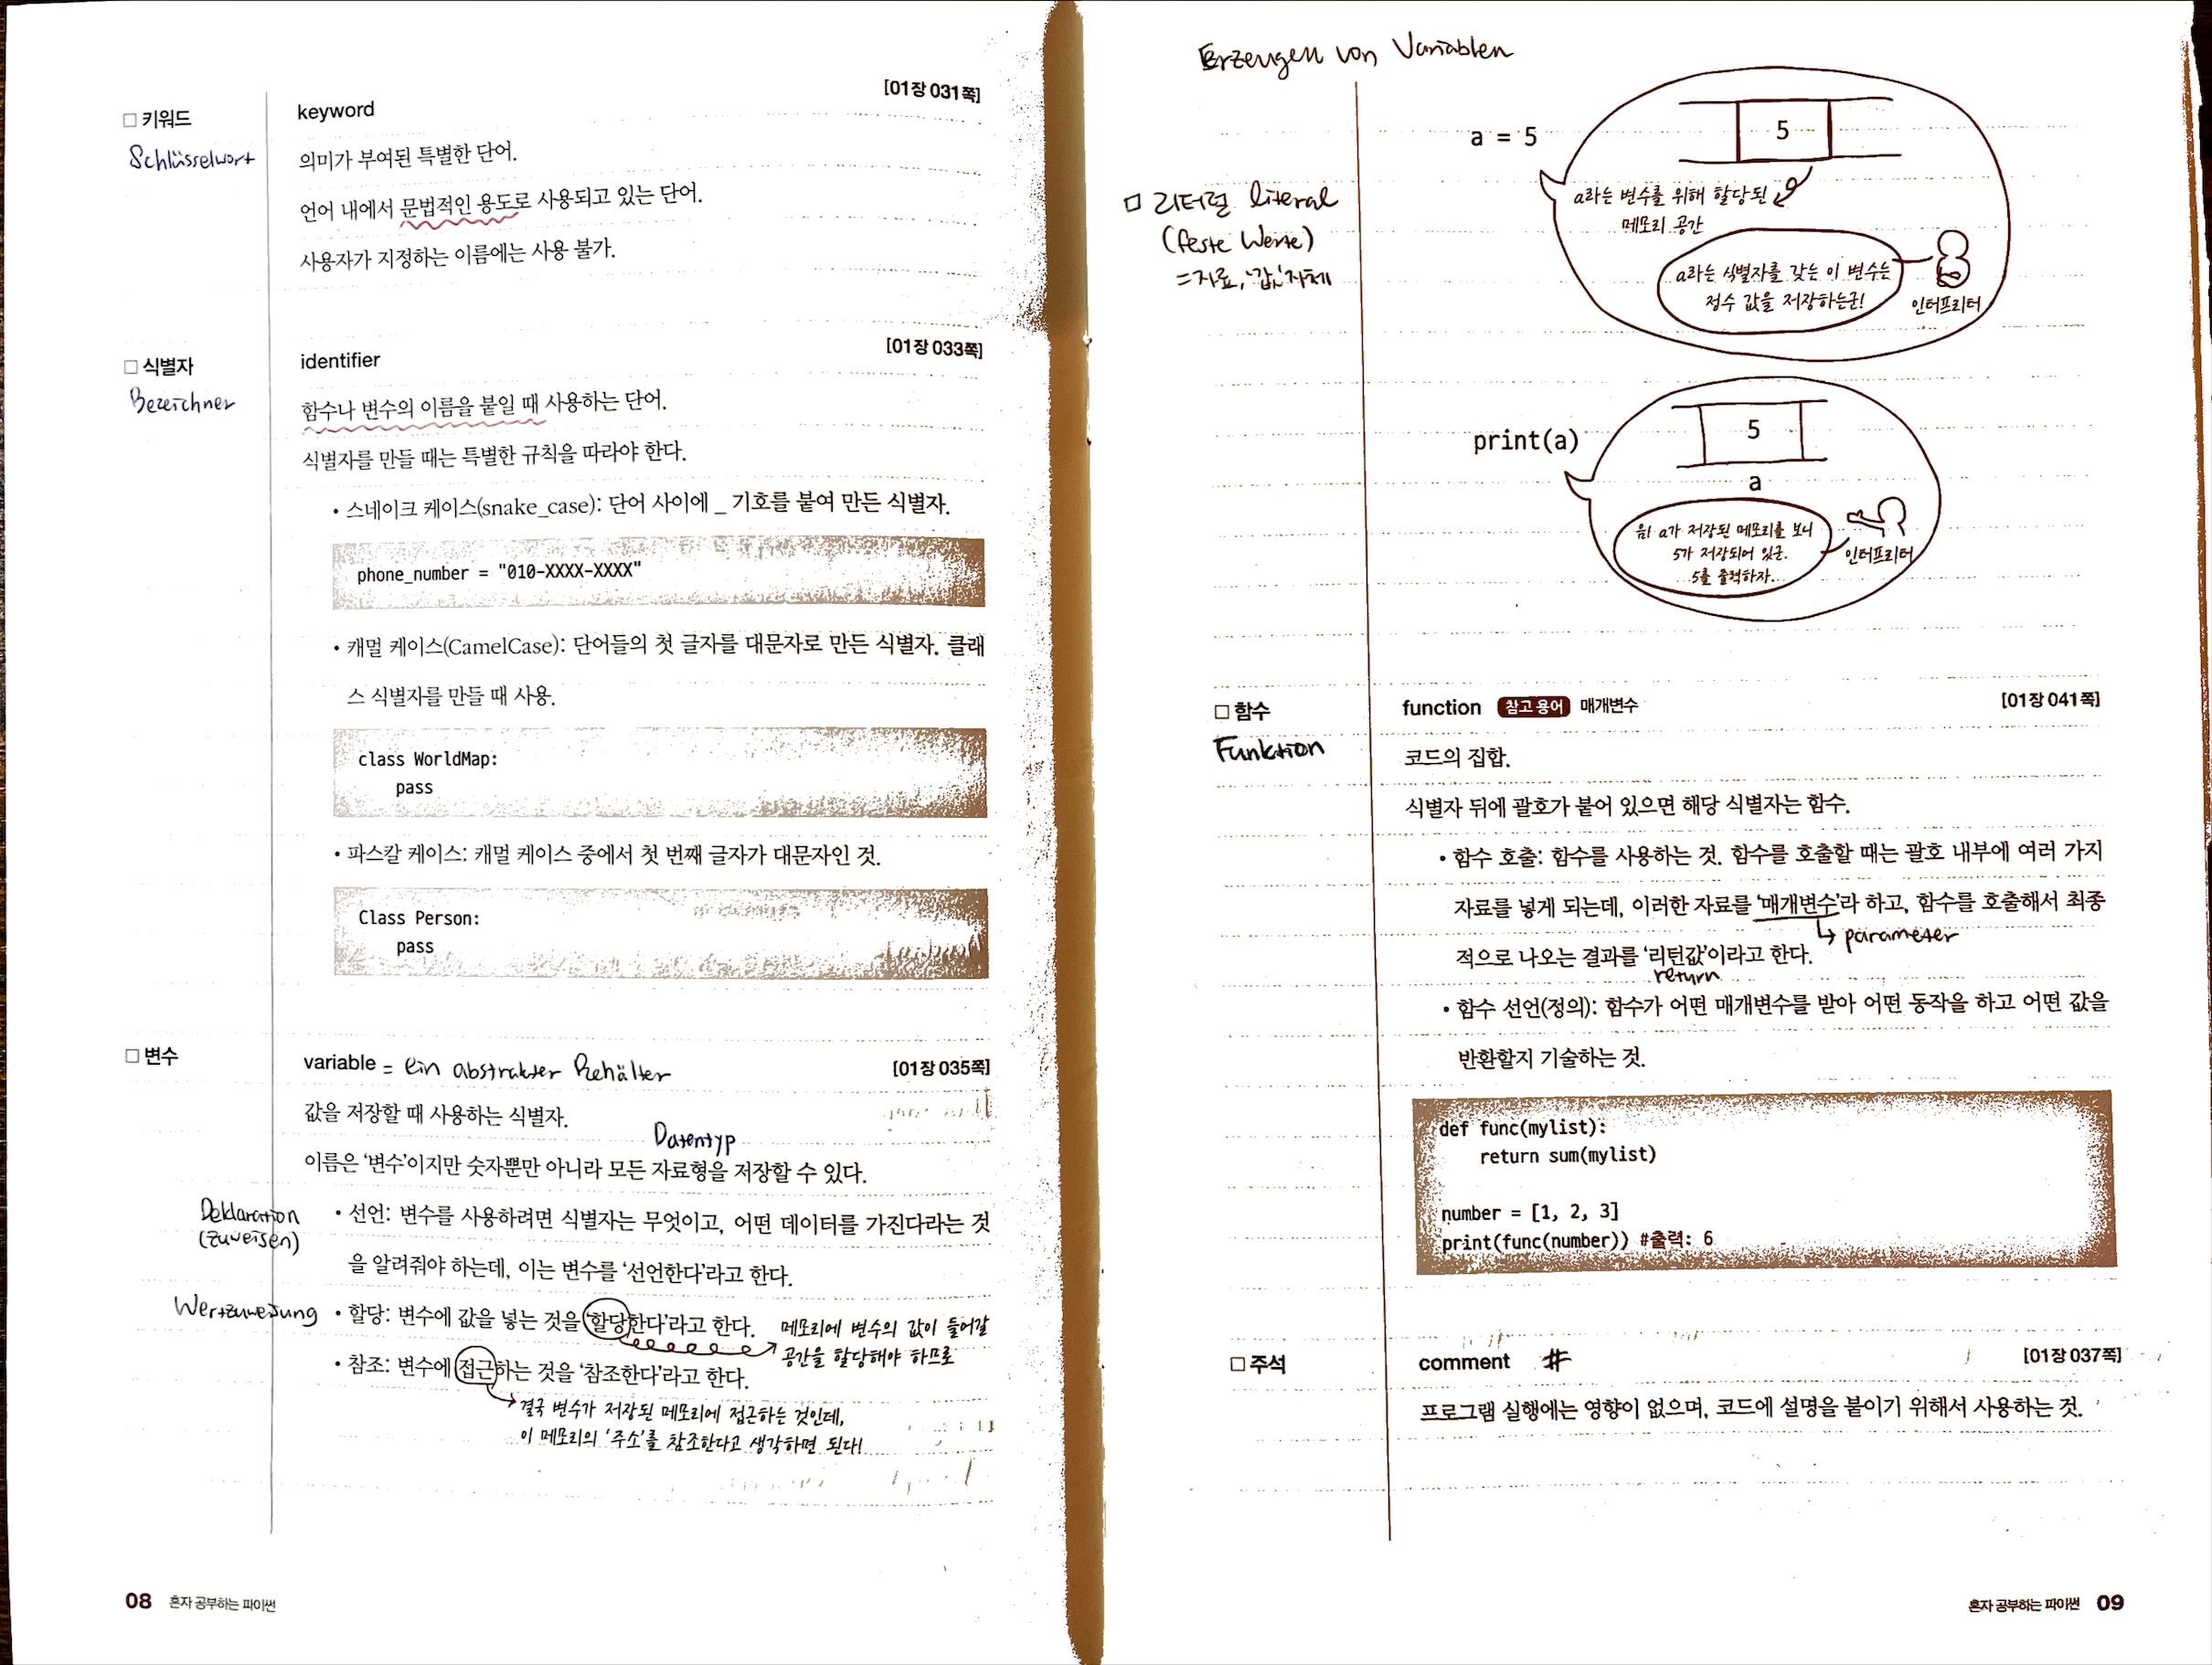 [01장 031쪽]
□ 키워드
keyword
Schlüsselwort
의미가 부여된 특별한 단어.
언어 내에서 문법적인 용도로 사용되고 있는 단어.
사용자가 지정하는 이름에는 사용 불가.
[01장 033쪽]
□ 식별자
identifier
Bezeichner
함수나 변수의 이름을 붙일 때 사용하는 단어.
식별자를 만들 때는 특별한 규칙을 따라야 한다.
• 스네이크 케이스(snake_case): 단어 사이에 _ 기호를 붙여 만든 식별자.
phone_number = "010-XXXX-XXXX"
• 캐멀 케이스(CamelCase): 단어들의 첫 글자를 대문자로 만든 식별자. 클래
스 식별자를 만들 때 사용.
class WorldMap:
pass
• 파스칼 케이스: 캐멀 케이스 중에서 첫 번째 글자가 대문자인 것.
Class Person:
pass
□ 변수
variable = ein abstrakter Behälter
[01장 035쪽]
값을 저장할 때 사용하는 식별자.
Datentyp
이름은 ‘변수’이지만 숫자뿐만 아니라 모든 자료형을 저장할 수 있다.
Deklaration
(zuweisen)
• 선언: 변수를 사용하려면 식별자는 무엇이고, 어떤 데이터를 가진다라는 것
을 알려줘야 하는데, 이는 변수를 ‘선언한다’라고 한다.
Wertzuweisung
• 할당: 변수에 값을 넣는 것을 ‘할당한다’라고 한다.
메모리에 변수의 값이 들어갈
공간을 할당해야 하므로
• 참조: 변수에 접근하는 것을 ‘참조한다’라고 한다.
결국 변수가 저장된 메모리에 접근하는 것인데,
이 메모리의 ‘주소’를 참조한다고 생각하면 된다!
08 혼자 공부하는 파이썬
Erzeugen von Variablen
a = 5
5
a라는 변수를 위해 할당된
메모리 공간
a라는 식별자를 갖는 이 변수는
정수 값을 저장하는군!
인터프리터
□ 리터럴 literal
(feste Werte)
=자료, ‘값’자체
print(a)
5
a
음! a가 저장된 메모리를 보니
5가 저장되어 있군.
5를 출력하자...
인터프리터
□ 함수
function 참고 용어 매개변수
[01장 041쪽]
Funktion
코드의 집합.
식별자 뒤에 괄호가 붙어 있으면 해당 식별자는 함수.
• 함수 호출: 함수를 사용하는 것. 함수를 호출할 때는 괄호 내부에 여러 가지
자료를 넣게 되는데, 이러한 자료를 ‘매개변수’라 하고, 함수를 호출해서 최종
↳ parameter
적으로 나오는 결과를 ‘리턴값’이라고 한다.
return
• 함수 선언(정의): 함수가 어떤 매개변수를 받아 어떤 동작을 하고 어떤 값을
반환할지 기술하는 것.
def func(mylist):
return sum(mylist)
number = [1, 2, 3]
print(func(number)) #출력: 6
□ 주석
comment #
[01장 037쪽]
프로그램 실행에는 영향이 없으며, 코드에 설명을 붙이기 위해서 사용하는 것.
혼자 공부하는 파이썬 09